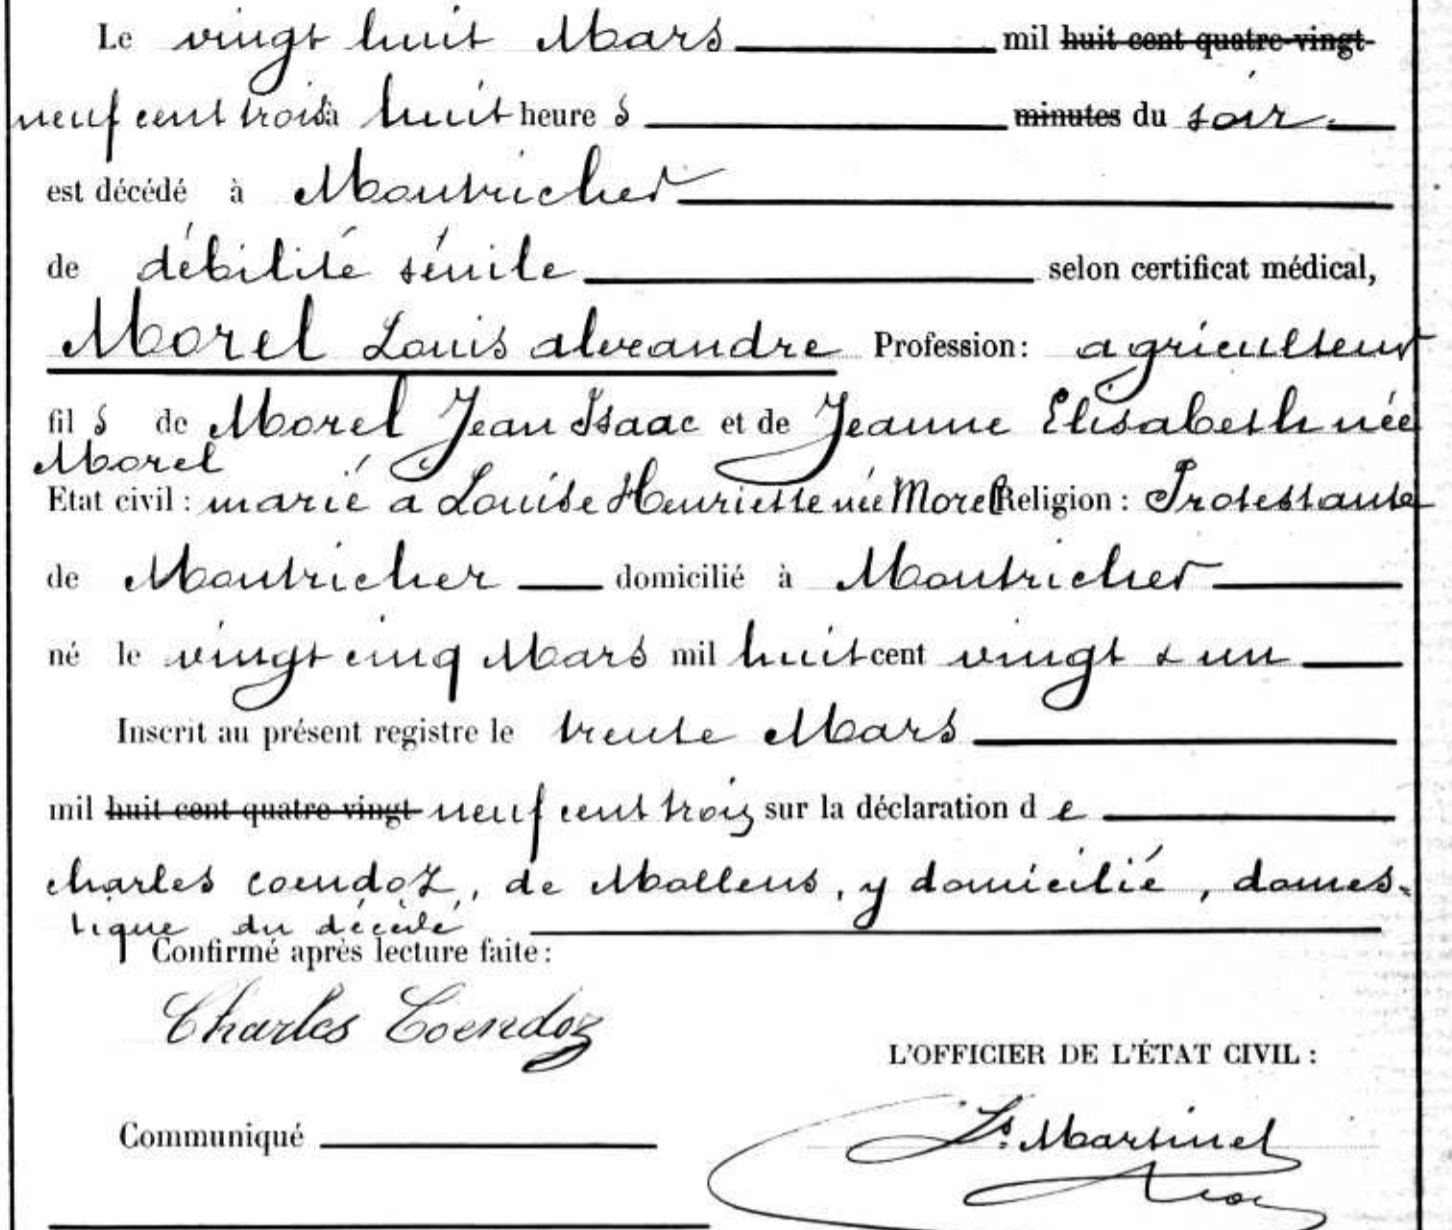 Le vingt huit Mars mil huit cent quatre-vingt-
neuf cent trois à huit heures minutes du soir
est décédé à Montricher
de débilité sénile selon certificat médical,
Morel Louis alexandre Profession: agriculteur
fils de Morel Jean Isaac et de Jeanne Elisabeth née
Morel
Etat civil: marié à Louise Henriette née Morel Religion: Protestante
de Montricher domicilié à Montricher
né le vingt cinq Mars mil huit cent vingt & un
Inscrit au présent registre le trente Mars
mil huit cent quatre-vingt neuf cent trois sur la déclaration de
charles coendoz, de Mollens, y domicilié, domes-
tique du décédé
Confirmé après lecture faite:
Charles Coendoz
L'OFFICIER DE L'ÉTAT CIVIL:
Communiqué
Ls. Martinet